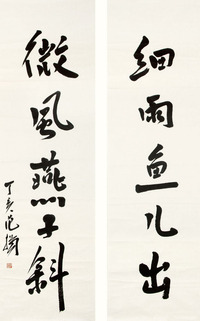 细雨鱼儿出
微风燕子斜
丁亥范曾